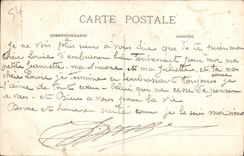 54
CARTE POSTALE
CORRESPONDANCE ADRESSE
Je ne vois plus rien à vous dire que de te
chère Louise d'embrasser bien tendrement pour moi ma
petite Jeannette. ma Simone et ma Juliette. et toi ma
chère Louise je termine en t'embrassant toujours comme
je t'aime de tout cœur. Celui qui ne cesse de penser
à vous. et Bien à vous pour la vie
Bonne et heureuse santé comme je le suis moi même